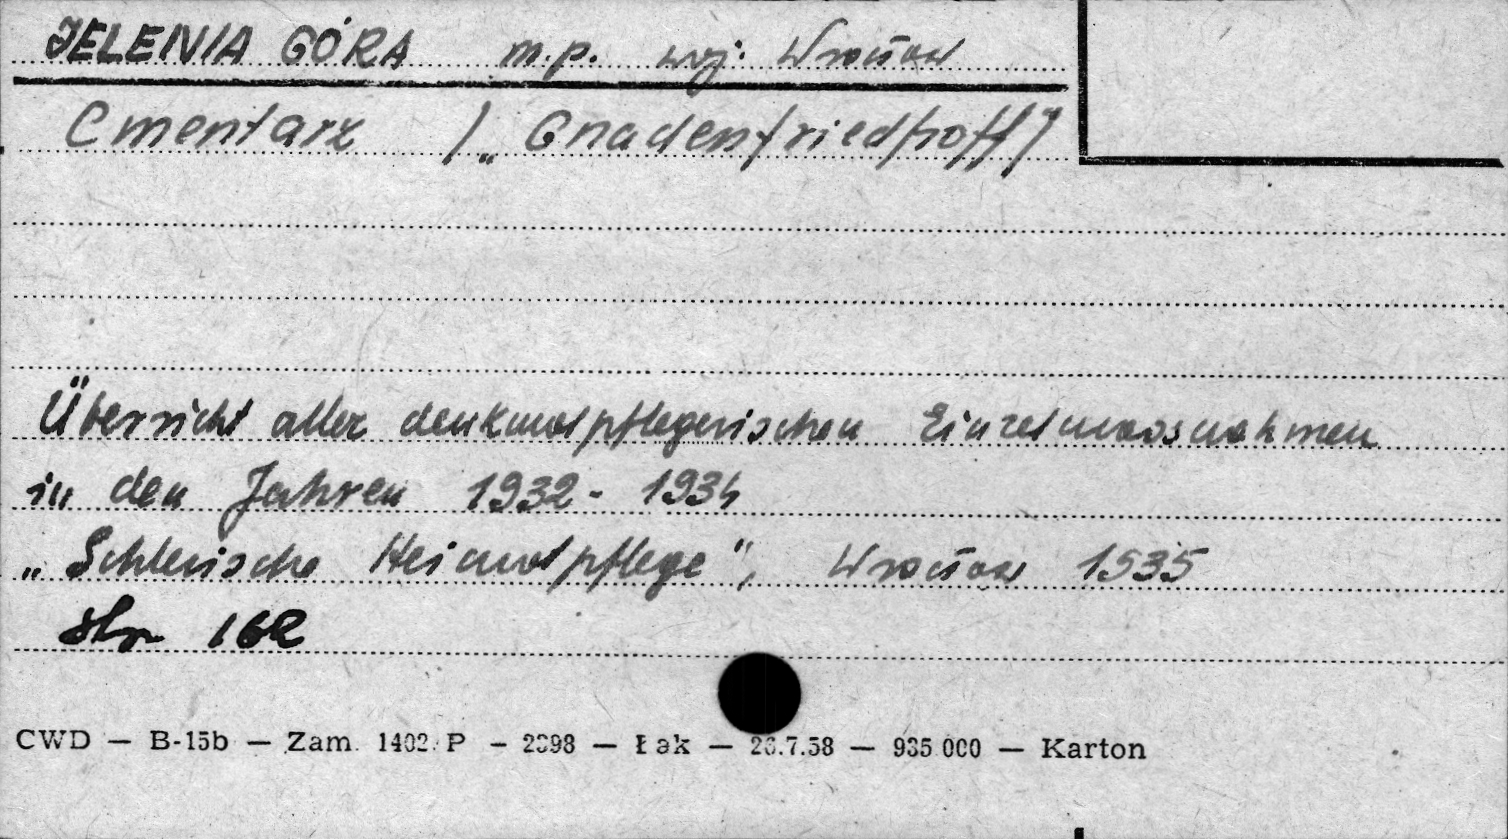 JELENIA GÓRA m.p. woj. Wrocław
Cmentarz /„Gnadenfriedhoff"/
Übersicht aller denkmalpflegerischen Einzelmassnahmen
in den Jahren 1932-1934
„Schlesische Heimatpflege", Wrocław 1935
str 162
CWD — B-15b — Zam. 1402/P — 2398 — Łak — 23.7.58 — 935 000 — Karton